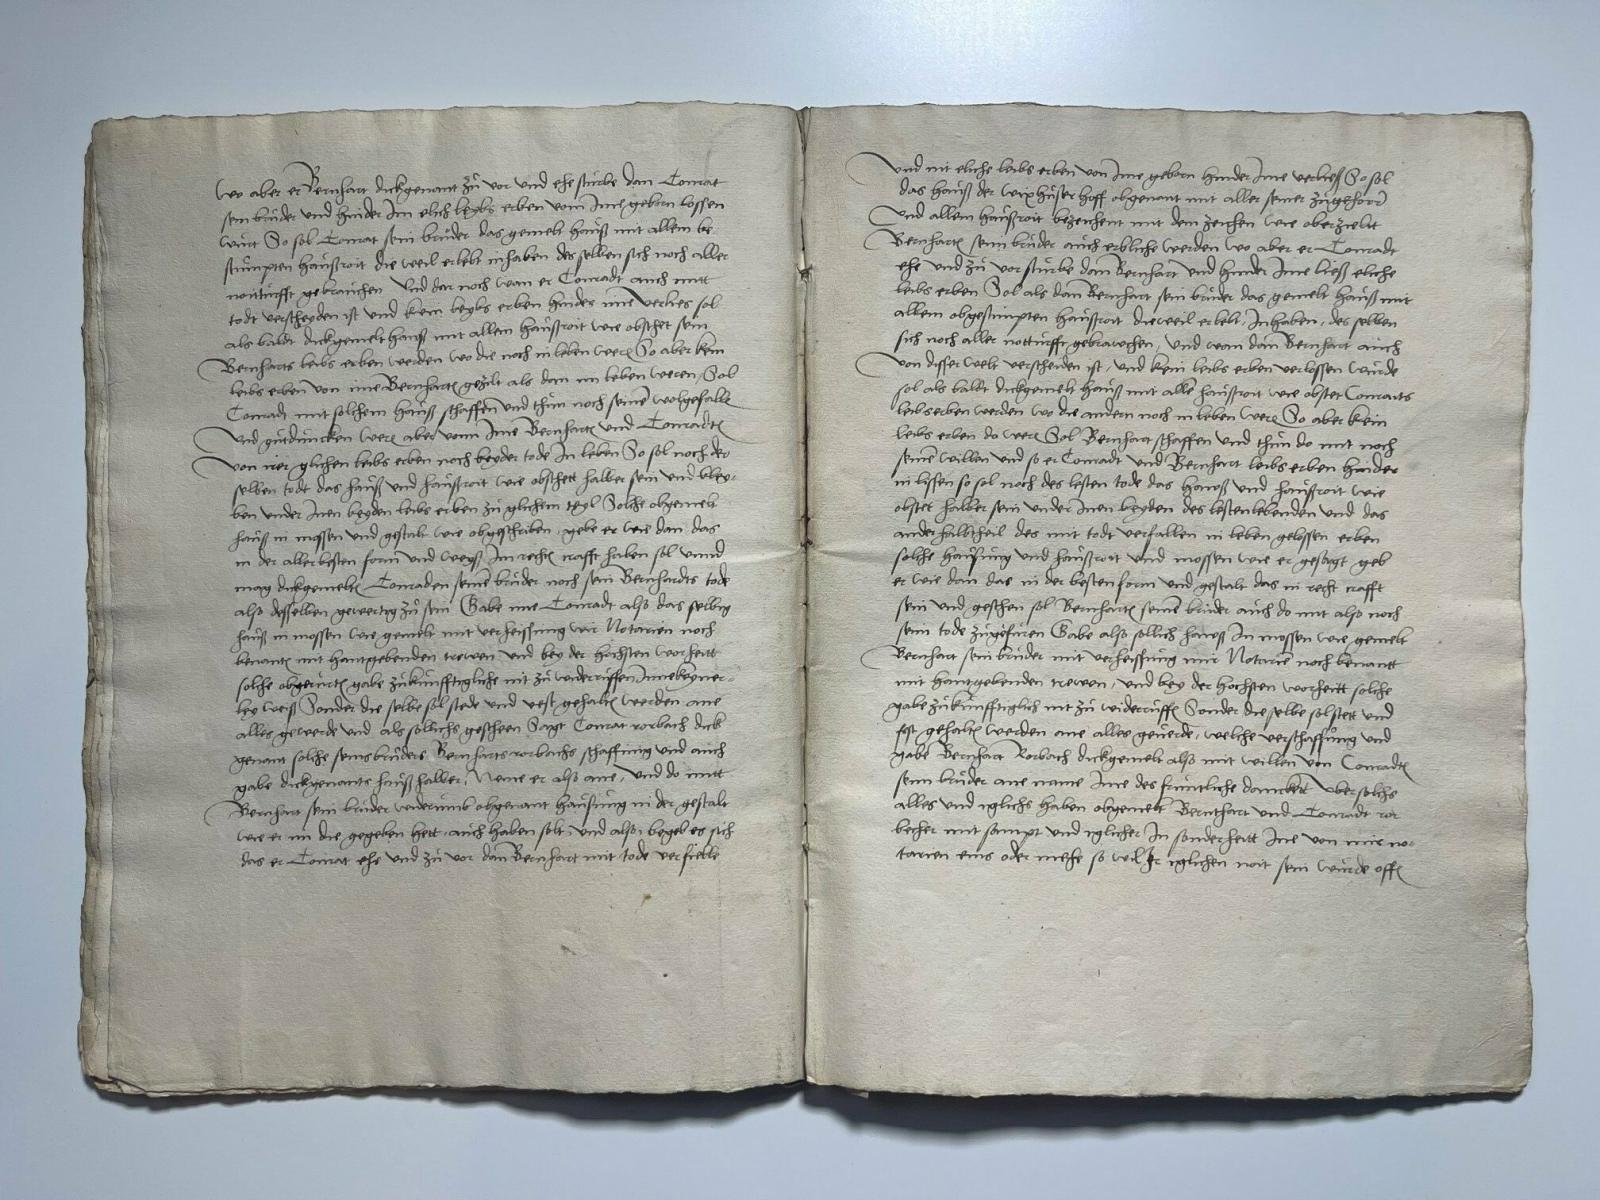 wo aber er Bernhart dickgenant zů vor und ehe sturbe dan Conrat
sein brůder und hinder Im elich leybs erben vonn Ime geborn lossen
wůrt So sol Conrat sein brůder das gemelt hauß mit allem be
stimpten haußroit die weil er lebt inhaben des selben sich noch aller
notturfft gebrauchen Und dar noch wan er Conradt auch mitt
todt verscheyden ist und kein leybs erben hinder ime verlies sol
als baldt dickgemelt hauß mit allem haußroit wie obsthet sein
Bernharts leibs erben werden wo die noch in leben weren So aber kein
leibs erben von ime Bernharten gezilt als dan im leben weren, Sol
Conradt mit solchem hauß schaffen und thun noch seinem wolgefallen
Und gutduncken weren aber vonn Ime Bernharten und Conradten
von irer glichen leibs erben noch beyder tode In leben So sol noch der
selben todt das hauß und haußroit wie obsthett halber sein und bley-
ben under Inen beyden leibs erben zů glichem teyl Solche obgemelt
hauß in mossen und gestalt wie obgeschriben, gebe er wie dan das
in der aller besten form und weyß Im rechten crafft haben sol unnd
mag dickgemelten Conraden seinem brůder noch sein Bernhardts tode
also desselben gewertig zů sein Gabe ime Conradt also das selbig
hauß in mossen wie gemelt mit verheissung mir Notarien noch
benanten mit hantgebenden trewen und bey der hochsten worheitt
solche obgerurten gabe zůkunfftigliche nit zů widerruffen In ne keyner-
ley weiß Sonder die selbe sol stede und vest gehalten werden ane
alles geverde und als sollichs gescheen Sagt Conrat rorbach dick
genant solche seins brůders Bernharts rorbachs schaffung und auch
gabe dickgenants hauß halber, Neme er also ane, und do mitt
Bernhart sein brůder widerumb obgenant haußung in der gestalt
wie er im die gegeben hett, auch haben solt, und also begeb es sich
das er Conrat ehe und zů vor dan Bernhart mit tode verfielle
Und nit eliche leibs erben von Ime geborn hinder Ime verließ So sol
das hauß der wixhuser hoff obgenant mit aller seiner zůgehord
Und allem haußroit bezeichent mit dem zeichen wie oberzielt
Bernharten sein brůder auch erbliche werden wo aber er Conradt
ehe und zů vor sturbe dan Bernhart und hinder Ime ließ eliche
leibs erben Sol als dan Bernhart sein brůder das gemelt hauß mit
allem obgestimpten haußroit dieweil er lebt, Inhaben, des selben
sich noch aller notturfft gebrauchen, Und wan dan Bernhart auch
von disser welt verscheiden ist, und kein leibs erben verlossen wurde
sol als baldt dickgemelt hauß mit allem haußroit wie obstet Conrarts
leibs erben werden wo die andern noch in leben weren So aber kein
leibs erben do weren Sol Bernhart schaffen und thun do mit noch
seinem willen und so er Conradt und Bernhart leibs erben hinder
in lissen so sol noch des lesten tode das hawß und haußroit wie
obstet halber sein under Inen beyden des lestenlebenden und das
ander halbtheil des mit todt verfallen in leben gelossen erben
solche haußung und haußroit und mossen wie er gesagt geb
er wie dan das in der besten form und gestalt das in recht crafft
sein und geschen sol Bernharten seinem brůder auch do mit also noch
seim tode zůgefuren Gabe also sollich hawß In mossen wie gemelt
Bernhart sein brůder mit verheissung mir Notarien noch benantt
mit hantgebenden trewen, und bey der hochsten worheitt solche
gabe zůkunfftiglich nit zů widerruffen Sonder die selbe sol stett und
fest gehalten werden ane alles geuerde, welche verschaffung und
gabe Bernhart Rorbach dickgemelt also mit willen von Conradten
seim brůder ane name Ime des fruntliche danckett uber solchs
alles und iglichs haben obgemelt Bernthart und Conradt ror
becher mit sampt und iglicher In sonderheitt Ine von mir no-
tarien eins oder mehe so wil Ir iglichen noit sein wurde offen